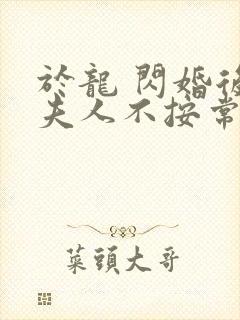 於龍 閃婚後
夫人不按常
菜頭大哥